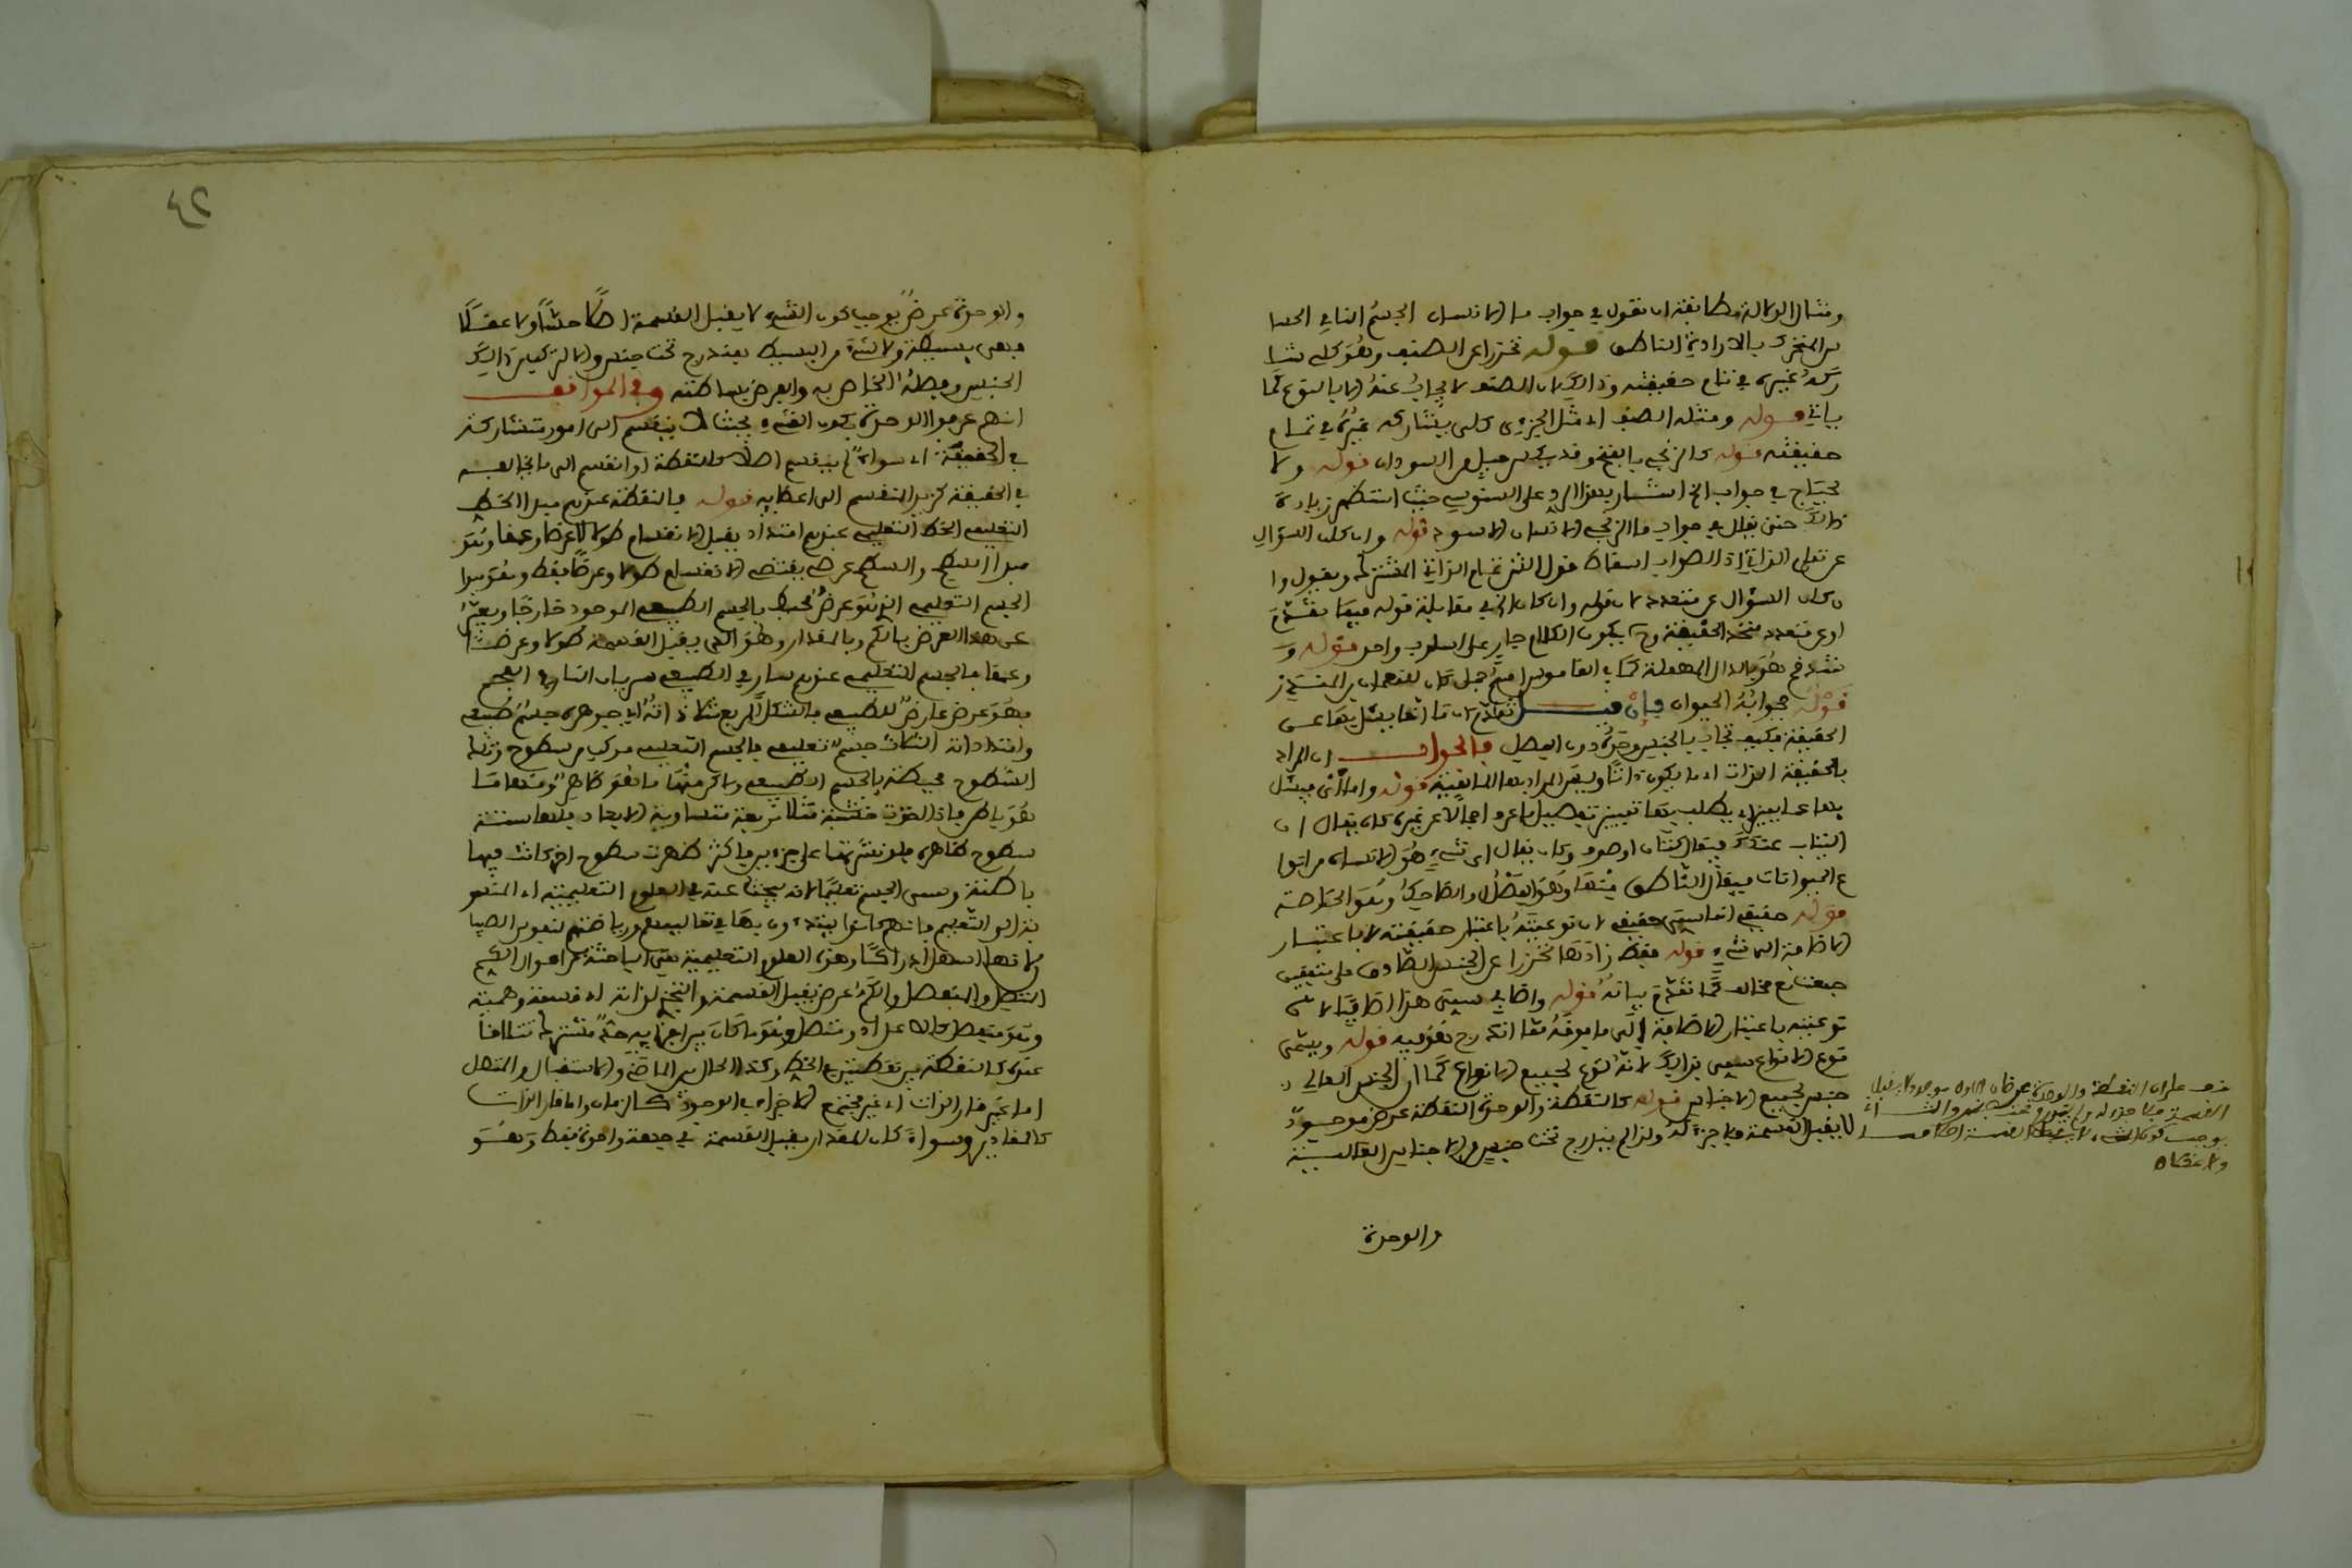 ومثال الدلالة مطابقة ان تقول في جواب ما الانسان الجسم النامي الحسا
س المتحرك بالارادة الناطق قوله تحرزا عن الصنف وهو كلي يشا
ركه غيره في تمام حقيقته وذلك لان الصنف لا يجاب عنه الا بالنوع كما
ياتي قوله ومثله الصنف اي مثل الجزءي كلي يشاركه غيره في تمام
حقيقته قوله كالزنجي بالفتح وقد يكسر جيل من السودان قوله ولا
يحتاج في جواب الخ اشار بهذا الرد على السنوسي حيث استظهر زيادة
ذلك حتى يقال في جواب ما الزنجي الانسان الاسود قوله وان كان السؤال
عن تمام الذاتي الصواب اسقاط قول المتن تمام الذاتي المشترك ويقول وا
ن كان السؤال عن متعدد لان قوله وان كان الخ في مقابلة قوله فيما تقدم
او عن متعدد متحد الحقيقة وح يكون الكلام جار على اسلوب واحد قوله و
هو بالدال المهملة كما في القاموس اسم جمل كان للنعمان بن المنذر
قوله فجوابه الحيوان فان قيل تقدم ان ما انما يسئل بها عن
الحقيقة فكيف تجاب بالجنس وحده دون الفصل فالجواب ان المراد
بالحقيقة الذات اي ما يكون ذاتيا وليس المراد بها الماهية قوله واما اي فيسئل
بها عما يميز اي يطلب بها تمييز تفصيل ما عرف اجمالا عن غيره كان يقال اي
الثياب عندك فيقال كتان او صوف وكان يقال اي شيء هو الانسان من انوا
ع الحيوانات فيقال الناطق منها وهو الفصل او الضاحك وهو الخاصة
قوله حقيقي انما سمي حقيقي لان نوعيته باعتبار حقيقته لا باعتبار
الاضافة الى شيء قوله فقط زادها تحرزا عن الجنس الصادق على متفقين
حقيقة مع مخالف كما تقدم بيانه قوله واضافي سمي هذا اضافيا لان
نوعيته باعتبار الاضافة الى ما فوقه مما اندرج هو فيه قوله ويسمى
نوع الانواع سمي بذلك لانه نوع لجميع الانواع كما ان الجنس العالي
جنس لجميع الاجناس قوله كالنقطة والوحدة النقطة عرض موجود
لا يقبل القسمة فلا جزء له ولذا لم يندرج تحت جنس من الاجناس العالية
والوحدة
ولا عقلا ه
٤٢
والوحدة عرض يوجب كون الشيء لا يقبل القسمة اصلا حسا ولا عقلا
فهي بسيطة ولا شيء من البسيط يندرج تحت جنس والا لتركب من ذلك
الجنس وفصله الخاص به والفرض بساطته وفي المواقف
انهم عرفوا الوحدة بكون الشيء بحيث لا ينقسم الى امور تتشارك
في الحقيقة اي سواء لم ينقسم اصلا كالنقطة او انقسم الى ما يخالفه
في الحقيقة كزيد المنقسم الى اعضايه قوله فالنقطة عندهم مبدا الخط
التعليمي الخط التعليمي عندهم امتداد يقبل الانقسام طولا لا عرضا وعمقا وهو
مبدا السطح والسطح عرض يقتضي الانقسام طولا وعرضا فقط وهو مبدا
الجسم التعليمي الذي هو عرض محيط بالجسم الطبيعي الموجود خارجا ويعبر
عن هذا العرض بالكم وبالمقدار وهو الذي يقبل القسمة طولا وعرضا
وعمقا فالجسم التعليمي عندهم سار في الطبيعي سريان النار في الفحم
فهو عرض عارض للطبيعي فالشكل المربع مثلا ذاته اي جوهره جسم طبيعي
وامتداداته الثلاث جسم تعليمي فالجسم التعليمي مركب من سطوح وتلك
السطوح محيطة بالجسم الطبيعي ولكن منها ما هو ظاهر ومنها ما
هو باطن فاذا اخذت خشبة مثلا مربعة متساوية الابعاد فلها ستة
سطوح ظاهرة فلو نشرتها على جزءين فاكثر ظهرت سطوح اخر كانت فيها
باطنة وسمي الجسم تعليميا لانه يبحث عنه في العلوم التعليمية اي المنسو
بة الى التعليم فانهم كانوا يبتدءون بها في تعاليمهم ورياضتهم لنفوس الصبيا
ن لانها اسهل ادراكا وهذه العلوم التعليمية هي الباحثة عن احوال الكم
المتصل والمنفصل والكم عرض يقبل القسمة والتجزي لذاته اي قسمة وهمية
وهو منفصل كالاعداد ومتصل وهو ما كان بين اجزايه حد مشترك تتلاقا
عنده كالنقطة بين نقطتين في الخط وكذا الحال بين الماضي والاستقبال والمتصل
اما غير قار الذات اي غير مجتمع الاجزاء في الوجود كالزمان واما قار الذات
كالمقادير وسواء كان المقدار يقبل القسمة في جهة واحدة فقط وهو